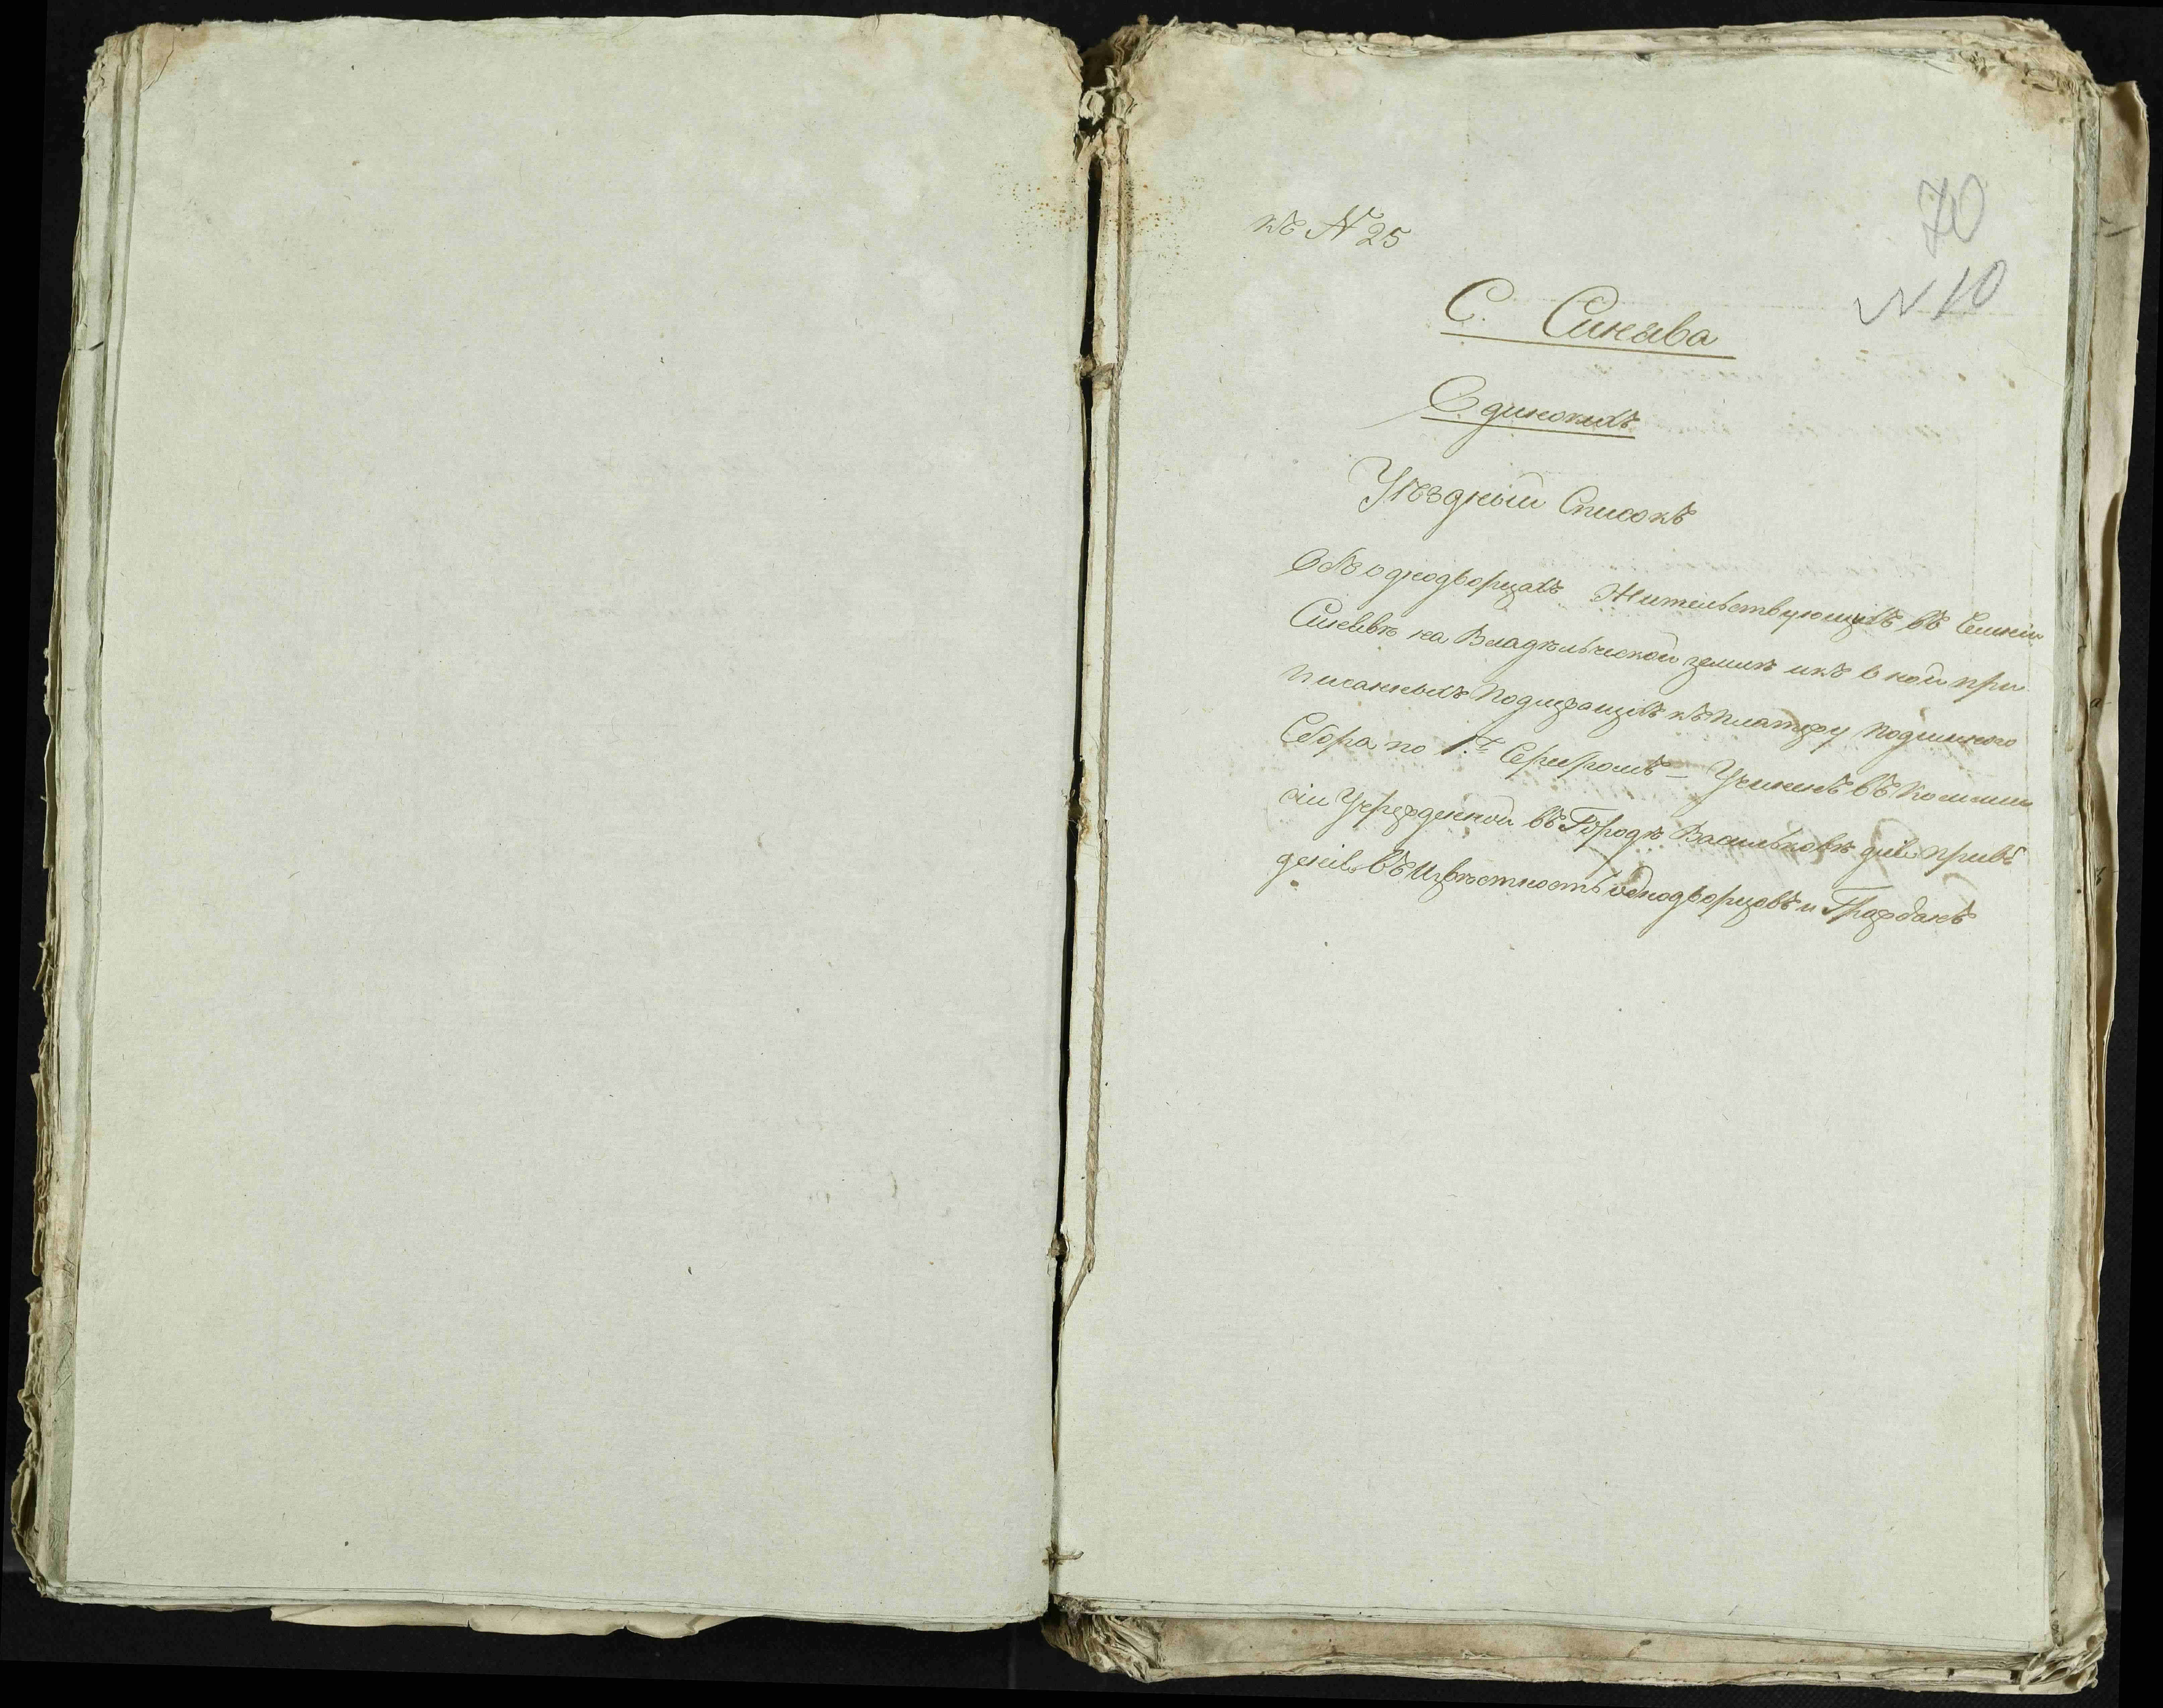 къ № 25
70
№ 10
С. Синява
Единокихъ
Уѣздный Списокъ
Объ однодворцахъ Жительствующихъ въ Селеніи
Синявѣ на Владѣльческой землѣ и къ оной при
писанныхъ подлежащихъ къ платежу подымнаго
Сбора по 1 Серебромъ — Учиненъ въ Комми
сіи Учрежденной въ Городѣ Васильковѣ для приве
денія въ Извѣстность однодворцовъ и Гражданъ